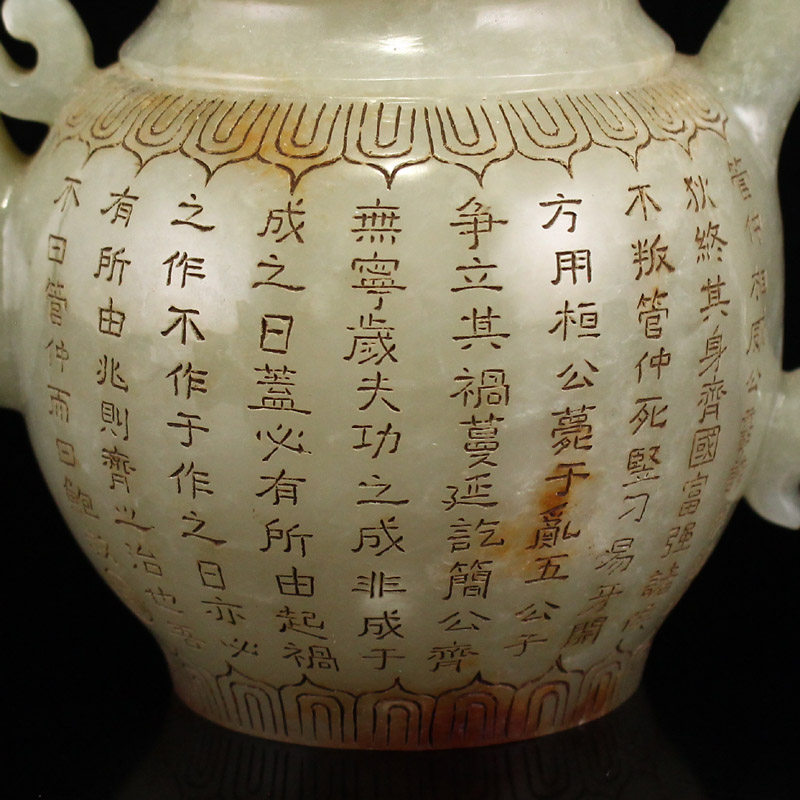 管仲相威公
狄終其身齊國富强諸侯
不叛管仲死竪刁易牙開
方用桓公薨于亂五公子
争立其禍蔓延訖簡公齊
無寧歲夫功之成非成于
成之日蓋必有所由起禍
之作不作于作之日亦必
有所由兆則齊之治也吾
不曰管仲而曰鮑